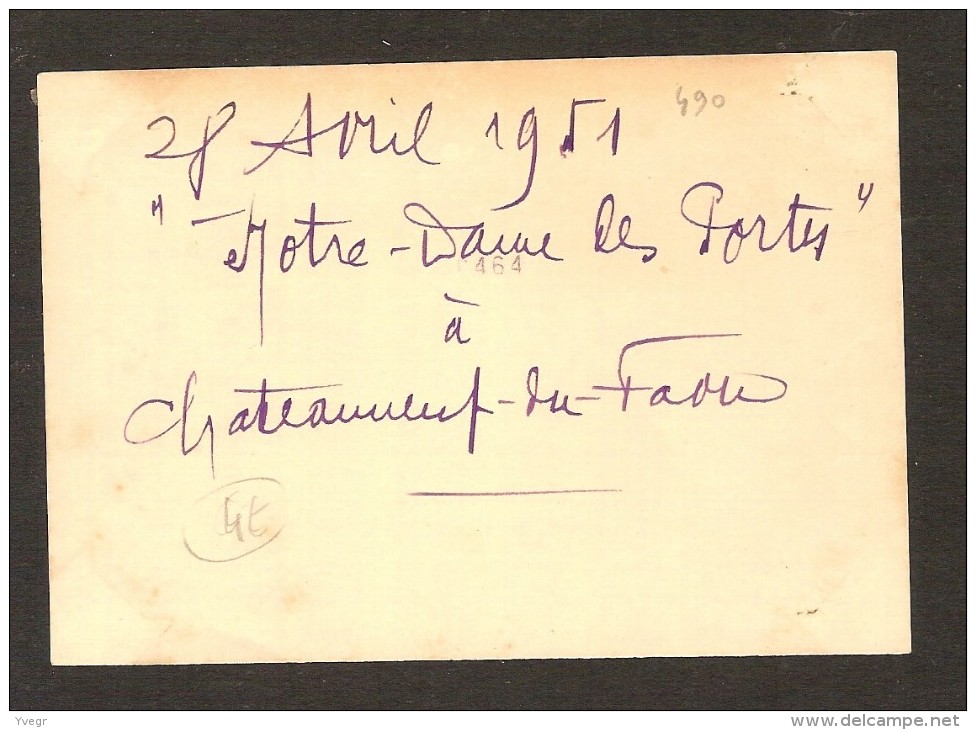 28 Avril 1951
490
" Notre-Dame des Portes "
464
à
Chateauneuf-du-Faou
Yvegr
www.delcampe.net